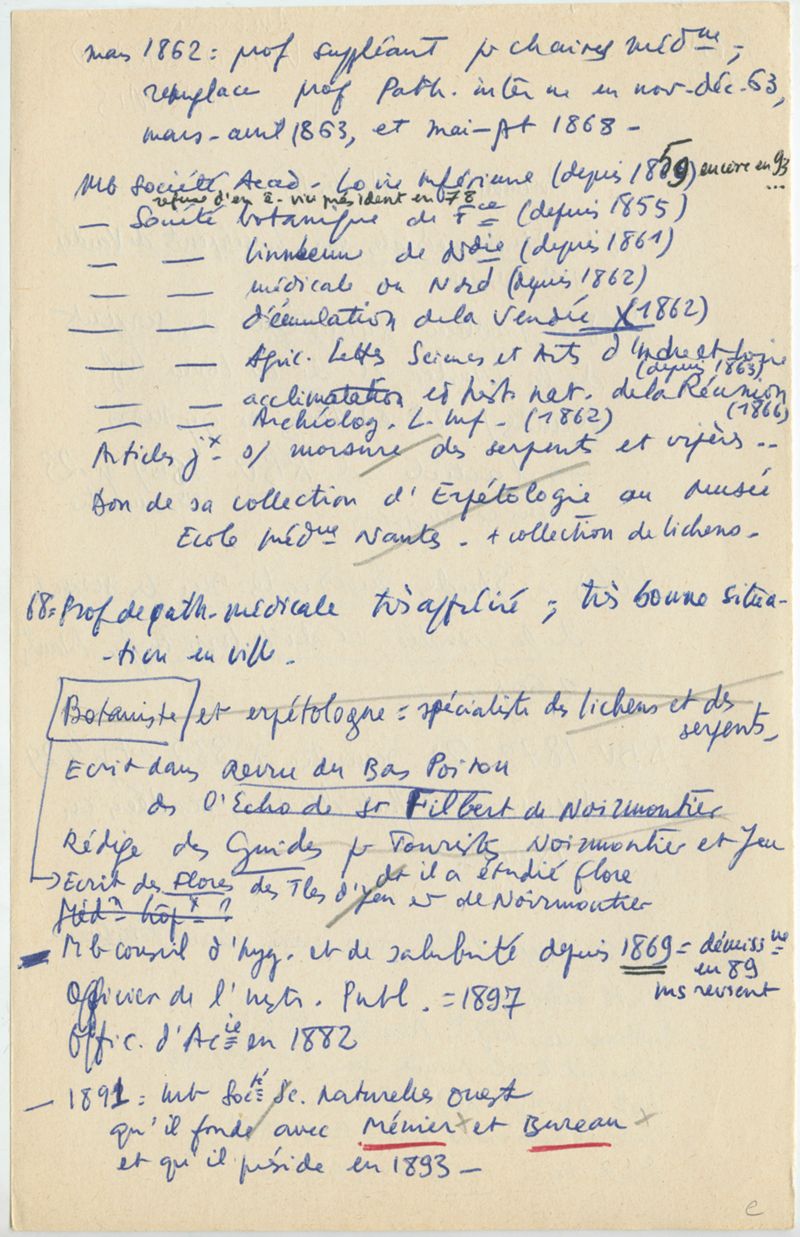 mars 1862 = prof suppléant pr chaires médne ;
remplace prof Path. interne en nov-déc. 63,
mars-avril 1863, et mai- 1868 -
Mb Société Acad. Loire Inférieure (depuis 1859) encore en 93 ...
refuse d'en ê. vice président en 78
— Société botanique de Fce (depuis 1855)
— — linnéenne de Ndie (depuis 1861)
— — médicale du Nord (depuis 1862)
— — d'émulation de la Vendée (1862)
— — Agric. Lettres Sciences et Arts d'Indre et Loire
(depuis 1863)
— — acclimatation et hist. nat. de la Réunion
(1866)
— — Archéolog. L. Inf. (1862)
Articles jx s/ morsure des serpents et vipères ..
Don de sa collection d'Erpétologie au Musée
Ecole Médne Nantes. + collection de lichens.
68 = Prof de path. médicale très apprécié ; très bonne situa-
-tion en ville.
Botaniste et erpétologue = spécialiste des lichens et des
serpents.
Ecrit dans Revue du Bas Poitou
ds l'Echo de St Filbert de Noirmoutier
Rédige des Guides pr Touristes Noirmoutier et Yeu
dt il a étudié flore
→ Ecrit des Flores des Iles d'Yeu et de Noirmoutier
Médn hôpx = ?
Mb conseil d'hyg. et de salubrité depuis 1869 = démissne
en 89
ms revient
Officier de l'Instr. Publ. = 1897
Offic. d'Acie en 1882
— 1891 = mb Socté Sc. Naturelles Ouest
qu'il fonde avec Ménier x et Bureau x
et qu'il préside en 1893 —
e